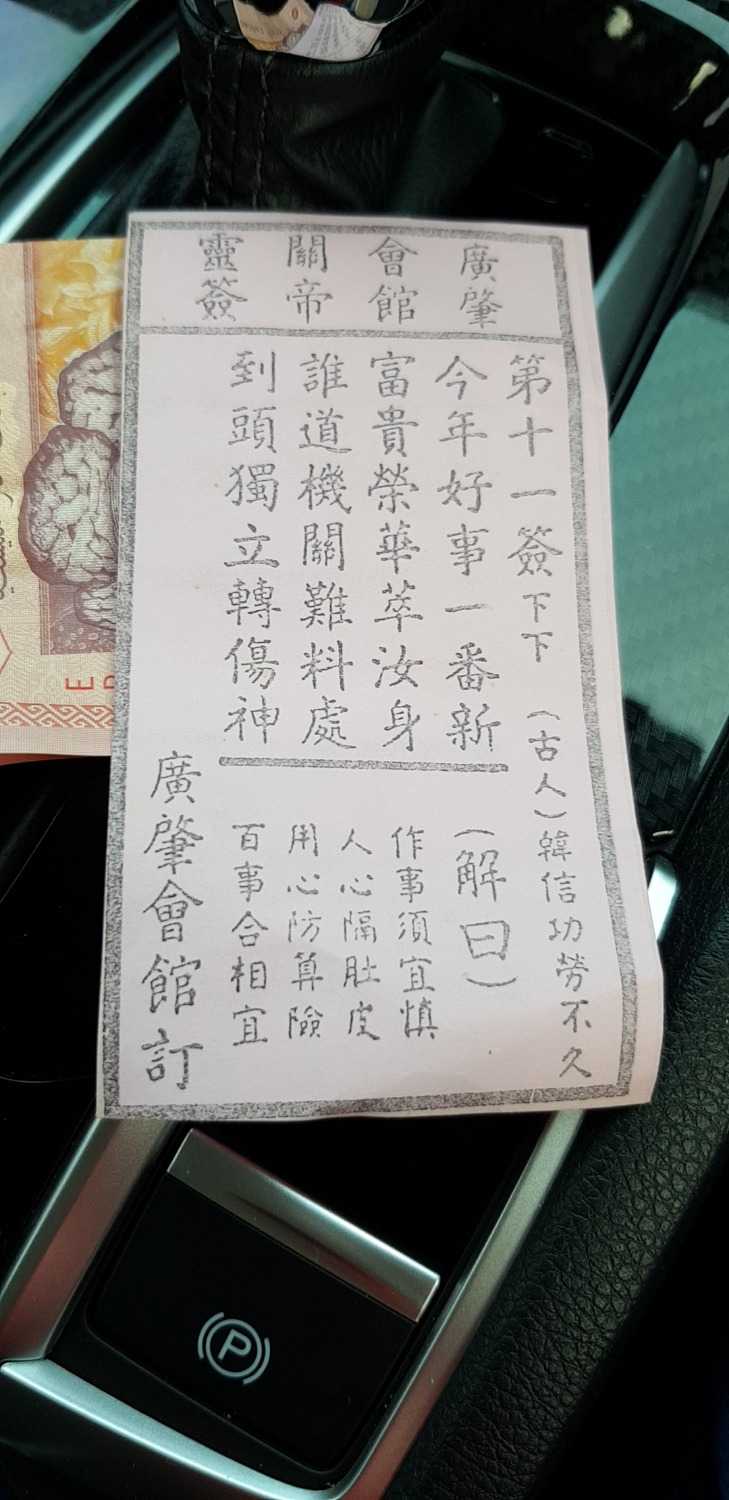 廣肇會館關帝靈簽
第十一簽下下 （古人）韓信功勞不久
今年好事一番新
富貴榮華萃汝身
誰道機關難料處
到頭獨立轉傷神
（解曰）
作事須宜慎
人心隔肚皮
用心防算險
百事合相宜
廣肇會館訂
P